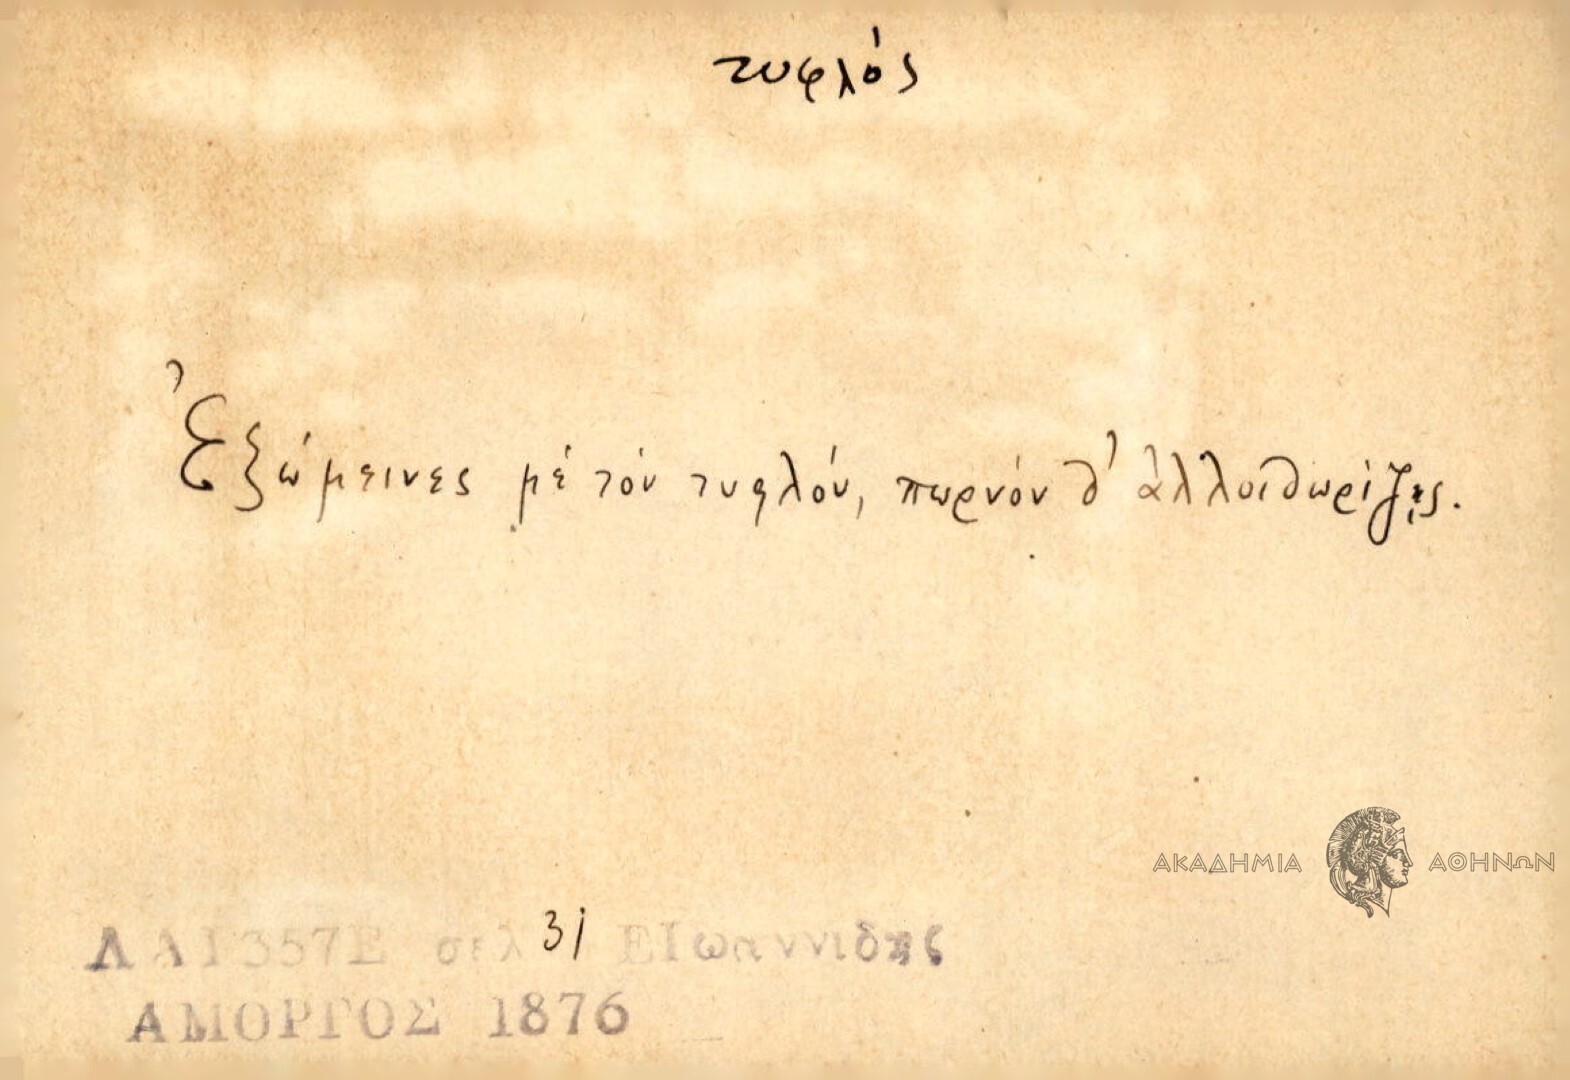 τυφλός
Ἐξώμεινες μέ τόν τυφλόν, πωρνόν θ' ἀλλοιθωρίζῃς.
ΑΚΑΔΗΜΙΑ ΑΘΗΝΩΝ
ΛΑ1357Ε σελ 31 ΕΙωαννιδης
ΑΜΟΡΓΟΣ 1876